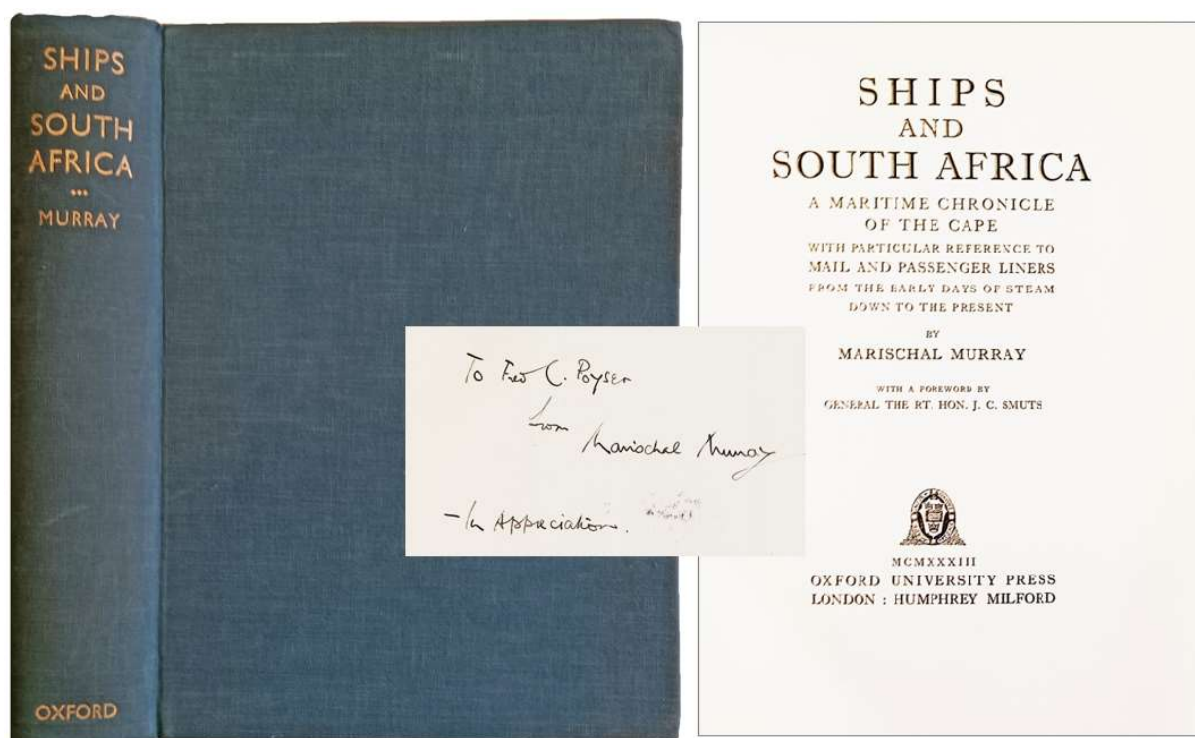 SHIPS
AND
SOUTH
AFRICA
•••
MURRAY
OXFORD
To Fred C. Poyser
from
Marischal Murray
- In Appreciation.
SHIPS
AND
SOUTH AFRICA
A MARITIME CHRONICLE
OF THE CAPE
WITH PARTICULAR REFERENCE TO
MAIL AND PASSENGER LINERS
FROM THE EARLY DAYS OF STEAM
DOWN TO THE PRESENT
BY
MARISCHAL MURRAY
WITH A FOREWORD BY
GENERAL THE RT. HON. J. C. SMUTS
MCMXXXIII
OXFORD UNIVERSITY PRESS
LONDON : HUMPHREY MILFORD